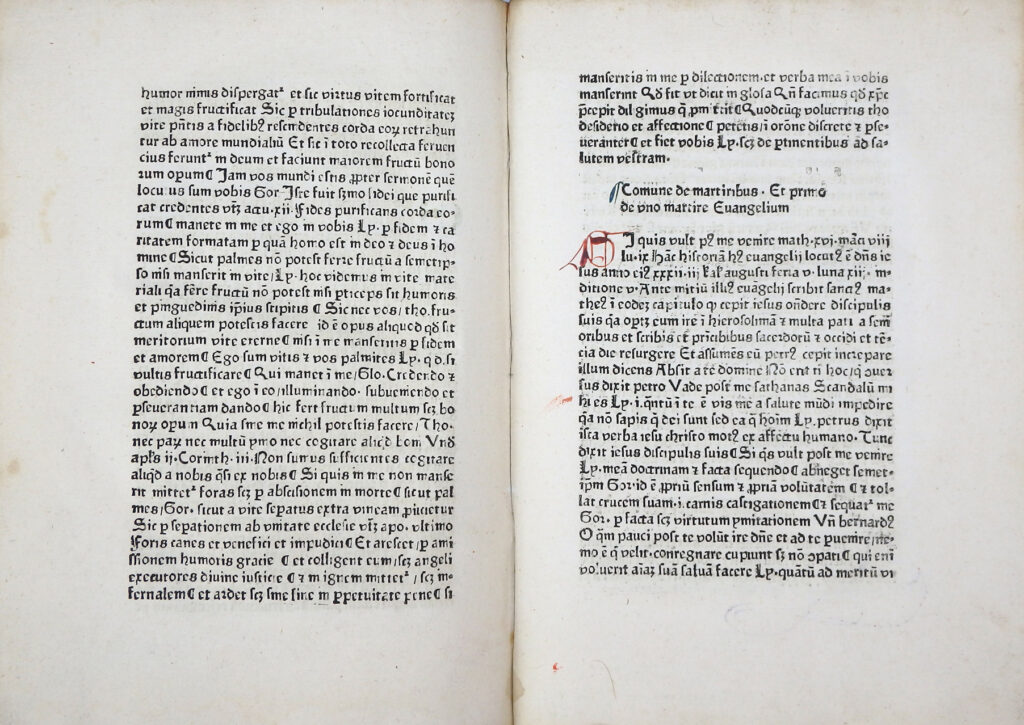 humor nimis dispergatᷣ et sic virtus vitem fortificat
et magis fructificat Sic ꝑ tribulationes iocunditatez
vite p̄ntis a fidelibꝰ resendentes corda eoꝝ retrahun
tur ab amore mundialiū Et sic ī toto recollecta feruen
cius feruntᷣ in deum et faciunt maiorem fructū bono
rum operum¶ Iam vos mundi estis ꝓpter sermonē quē
locutus sum vobis Gor Iste fuit sermo fidei que purifi
cat credentes vtꝫ actu.xii. Fides purificans corda eo⸗
rum¶ manete in me et ego in vobis Ly. ꝑ fidem ⁊ ca
ritatem formatam ꝑ quā homo est in deo ⁊ deus ī ho
mine¶ Sicut palmes nō potest ferre fructū a semetip⸗
so nisi manserit in vite/Ly. hoc videmus in vite mate
riali q̄a fēre fructū nō potest nisi ꝑticeps sit humoris
et pinguedinis ip̄ius stipitis ¶ Sic nec vos/tho. fru⸗
ctum aliquem potestis facere id ē opus aliquod qđ sit
meritorium vite eterne¶ nisi ī me manseritis ꝑ fidem
et amorem¶ Ego sum vitis ⁊ vos palmites Ly. q.d. si
vultis fructificare¶ Qui manet ī me/Glo. Credendo ⁊
obediendo¶ et ego ī eo/illuminando. subuemendo et
ꝑseuerantiam dando¶ hic fert fructum multum sꝫ bo
noꝝ operum Quia sine me nichil potestis facere/Tho.
nec pax nec multū ymo nec cogitare aliqđ boni Vnđ
apl̄s ij. Corinth. iii. Non sumus sufficientes cogitare
aliqđ a nobis q̄si ex nobis¶ Si quis in me non manse
rit mittetᷣ foras sꝫ ꝑ abscisionem in morte¶ sicut pal
mes/Gor. sicut a vite sepatus extra vineam proicietur
Sic ꝑ sepationem ab vnitate ecclesie vtꝫ apo. vltimo
Foris canes et venefici et impudici¶ Et arescet/ꝑ ami
ssionem humoris gracie ¶ et colligent eum/sꝫ angeli
executores diuine iusticie ¶ ⁊ in ignem mittetᷣ/sꝫ in⸗
fernalem¶ et ardet sꝫ sine fine in ꝑpetuitate pene¶ si
manseritis in me ꝑ dilectionem. et verba mea ī vobis
manserint Qđ fit vt dicit in glosa Qn̄ facimus qđ xp̄c
p̄cepit diligimus q̄ ꝓmittit¶ Quodcūqꝫ volueritis tho
desiderio et affectione¶ petetis/ī orōne discrete ⁊ ꝑse⸗
ueranter¶ et fiet vobis Ly. sꝫ de ꝑtinentibus ad sa⸗
lutem vestram.
Comune de martiribus. Et primo
de vno martire Euangelium
SI quis vult pꝰ me venire math.xvi. marci viii
lu.ix Hāc historiam hꝰ euangelij locutꝰ ē dn̄s ie
sus anno eiꝰ xxxii. iij kal̄ augusti feria v. luna xij. in⸗
ditione v. Ante initiū illiꝰ euāgelij scribit sanctꝰ ma⸗
theꝰ ī codeꝫ capitulo q̄ cepit iesus on̄dere discipulis
suis q̄a oportꝫ eum ire ī hierosolimā ⁊ multa pati a seni
oribus et scribis et prīcibibus sacerdotū ⁊ occidi et tēr
cia die resurgere Et assumēs eū petrꝰ cepit increpare
illum dicens Absit a te domine Nō erit ti hoc/q̄ ꝯuer
sus dixit petro Vade post me sathanas Scandalū mi
hi es Ly. i. q̄ntū ī te ē vis me a salute mūdi impedire
q̄a nō sapis q̄ dei sunt sed ea q̄ hoīm Ly. petrus dixit
ista verba iesu christo motꝰ ex affectu humano. Tunc
dixit iesus discipulis suis¶ Si q̄s vult post me venire
Ly. meā doctrinam ⁊ facta sequendo¶ abneget semet⸗
ip̄m Gor id ē ꝓpriū sensum ⁊ ꝓpriā volūtatem ¶ ⁊ tol⸗
lat crucem suam. i. carnis castigationem¶ ⁊ sequatᷣ me
Gor. ꝑ facta sꝫ virtutum ymitationem Vn̄ bernardꝰ
O q̄m pauci post te volūt ire dn̄e et ad te ꝑuenire/ne⸗
mo ē q̄ velit. conregnare cupiunt sꝫ nō ꝯpati¶ qui eni
voluerit aīaꝫ suā saluā facere Ly. quātū ad meritū vi